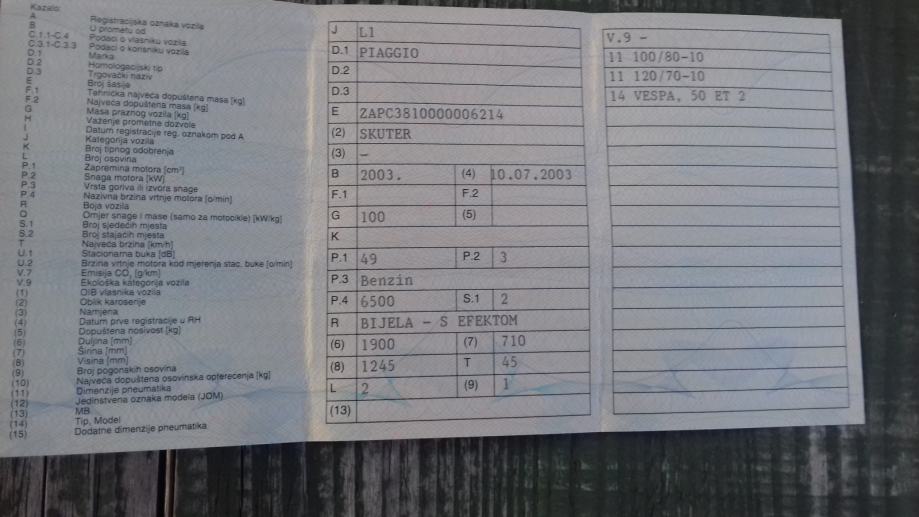 Kazalo:
A Registracijska oznaka vozila
B U prometu od
C.1.1-C.4 Podaci o vlasniku vozila
C.3.1-C.3.3 Podaci o korisniku vozila
D.1 Marka
D.2 Homologacijski tip
D.3 Trgovački naziv
E Broj šasije
F.1 Tehnička najveća dopuštena masa [kg]
F.2 Najveća dopuštena masa [kg]
G Masa praznog vozila [kg]
H Važenje prometne dozvole
I Datum registracije reg. oznakom pod A
J Kategorija vozila
K Broj tipnog odobrenja
L Broj osovina
P.1 Zapremina motora [cm³]
P.2 Snaga motora [kW]
P.3 Vrsta goriva ili izvora snage
P.4 Nazivna brzina vrtnje motora [o/min]
R Boja vozila
Q Omjer snage i mase (samo za motocikle) [kW/kg]
S.1 Broj sjedećih mjesta
S.2 Broj stajaćih mjesta
T Najveća brzina [km/h]
U.1 Stacionarna buka [dB]
U.2 Brzina vrtnje motora kod mjerenja stac. buke [o/min]
V.7 Emisija CO₂ [g/km]
V.9 Ekološka kategorija vozila
(1) OIB vlasnika vozila
(2) Oblik karoserije
(3) Namjena
(4) Datum prve registracije u RH
(5) Dopuštena nosivost [kg]
(6) Duljina [mm]
(7) Širina [mm]
(8) Visina [mm]
(9) Broj pogonskih osovina
(10) Najveća dopuštena osovinska opterećenja [kg]
(11) Dimenzije pneumatika
(12) Jedinstvena oznaka modela (JOM)
(13) MB
(14) Tip, Model
(15) Dodatne dimenzije pneumatika
J L1
D.1 PIAGGIO
D.2
D.3
E ZAPC3810000006214
(2) SKUTER
(3) –
B 2003. (4) 10.07.2003
F.1 F.2
G 100 (5)
K
P.1 49 P.2 3
P.3 Benzin
P.4 6500 S.1 2
R BIJELA – S EFEKTOM
(6) 1900 (7) 710
(8) 1245 T 45
L 2 (9) 1
(13)
V.9 –
11 100/80-10
11 120/70-10
14 VESPA, 50 ET 2